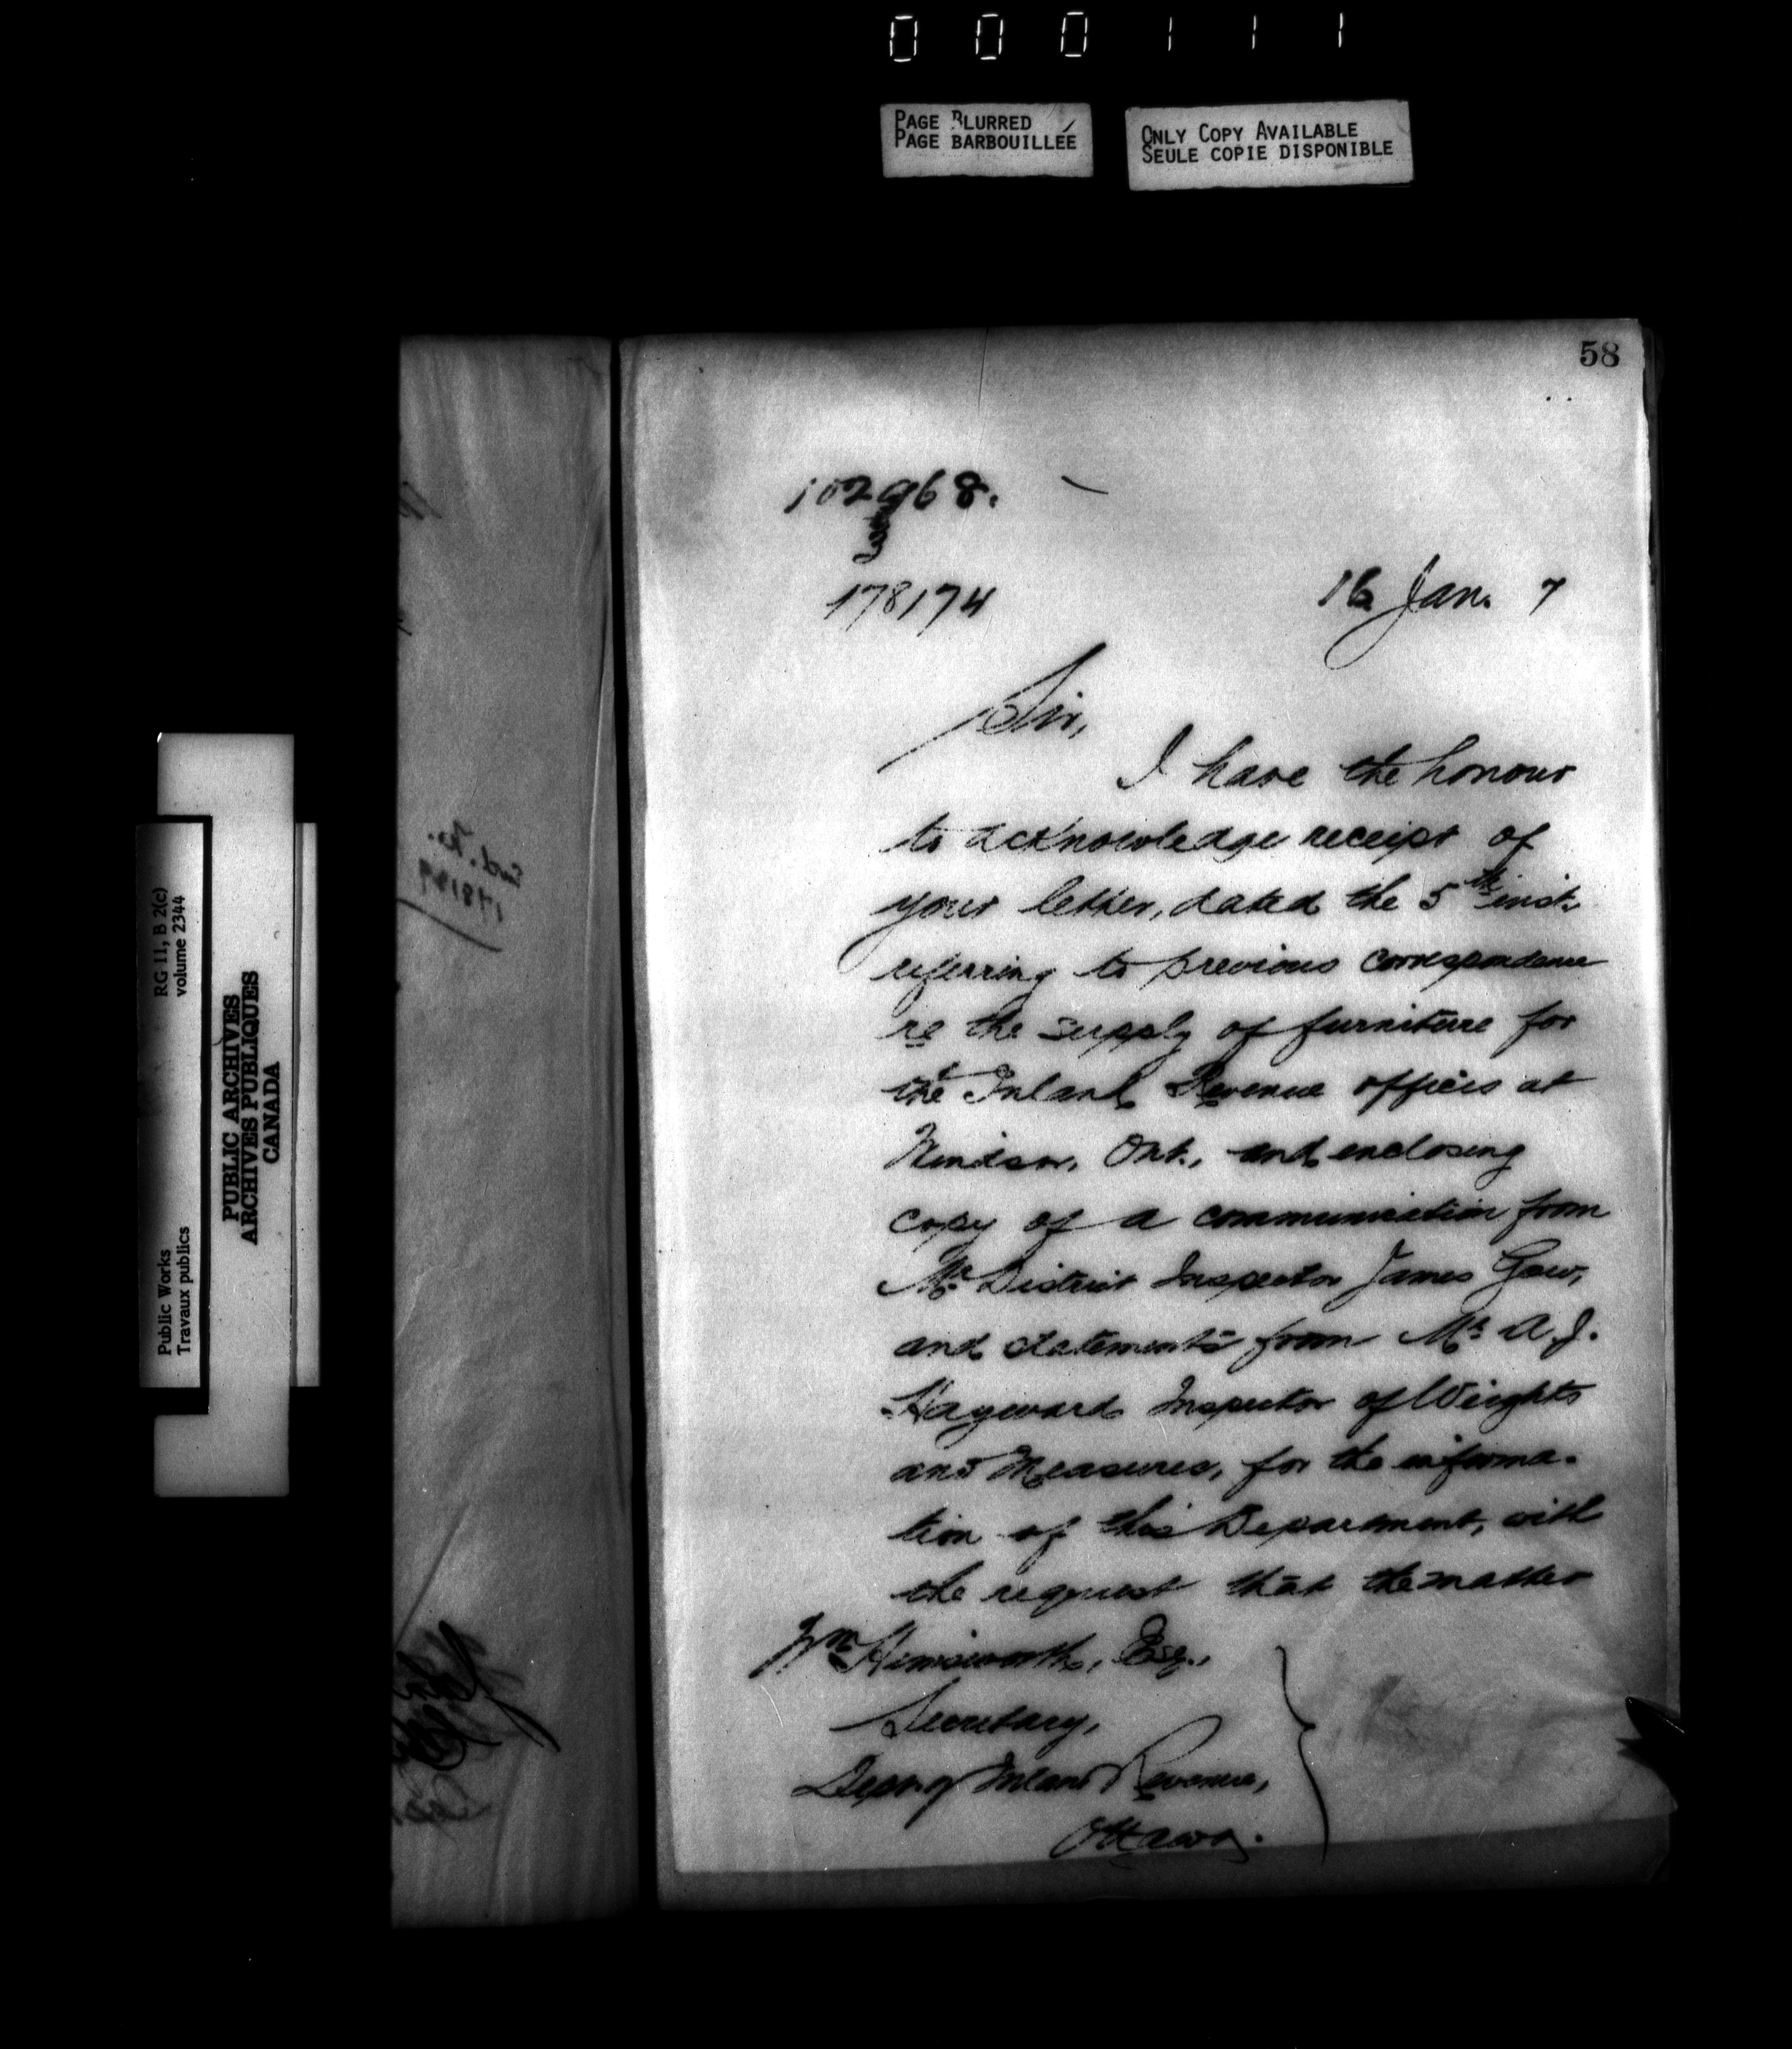 000111
PAGE BLURRED
PAGE BARBOUILLÉE
ONLY COPY AVAILABLE
SEULE COPIE DISPONIBLE
RG 11, B 2(c)
volume 2344
Public Works
Travaux publics
PUBLIC ARCHIVES
ARCHIVES PUBLIQUES
CANADA
58
102968.
178174
16 Jan. 7
Sir,
I have the honour
to acknowledge receipt of
your letter, dated the 5th inst.
referring to previous correspondence
re the supply of furniture for
the Inland Revenue offices at
Windsor, Ont., and enclosing
copy of a communication from
Mr. District Inspector James Gow,
and statements from Mr. A. J.
Hayward Inspector of Weights
and Measures, for the informa-
tion of this Department, with
the request that the matter
Wm Himsworth, Esq.,
Secretary,
Dept. of Inland Revenue,
Ottawa.